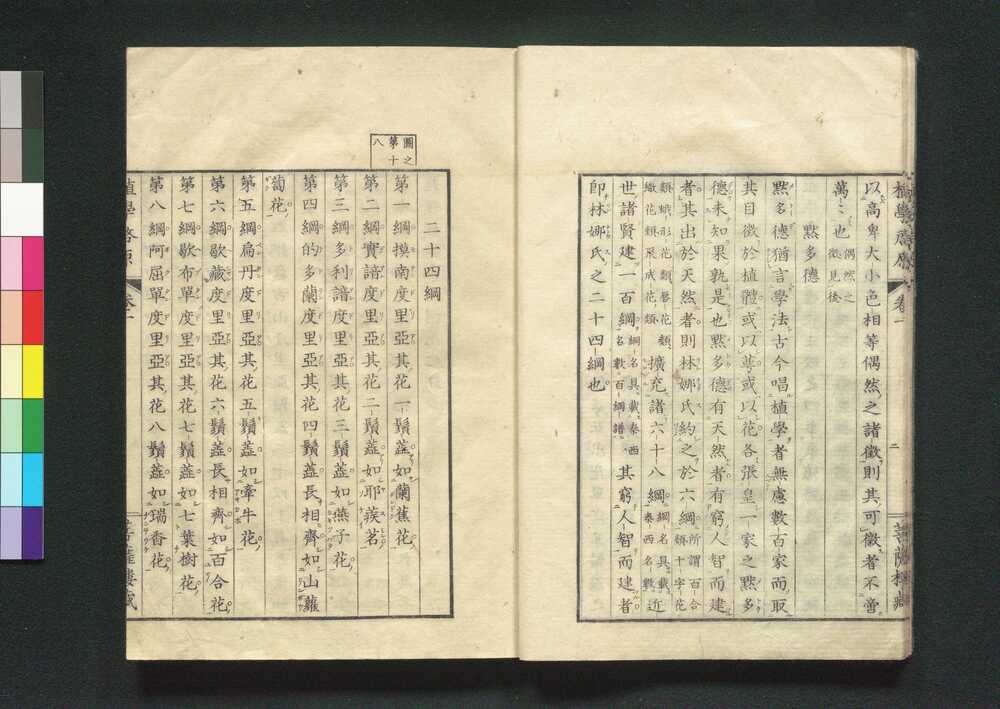 以高卑大小色相等偶然之諸徵則其可徵者不啻
萬〻也偶然之徵見後
黙多德
黙多德猶言學法古今唱植學者無慮數百家而取
其目徵於植體或以蕚或以花各張皇一家之黙多
德未知果孰是也黙多德有天然者有窮人智而建
者其出於天然者則林娜氏約之於六綱所謂百合類十字花類蛾形花類磬花類繖花類叐成花類擴充諸六十八綱綱名具載泰西名數近
世諸賢建一百綱綱名具載泰西名數百綱譜其窮人智而建者
卽林娜氏之二十四綱也
植學啓原 卷一 二 菩薩樓藏
圖之第十八
二十四綱
第一綱摸南度里亞其花一鬚蕋如蘭蕉花
第二綱實諳度里亞其花二鬚蕋如耶蒺茗
第三綱多利諳度里亞其花三鬚蕋如燕子花
第四綱的多蘭度里亞其花四鬚蕋長相齊如山蘿
蔔花
第五綱扁丹度里亞其花五鬚蕋如牽牛花
第六綱歇藏度里亞其花六鬚蕋長相齊如百合花
第七綱歇布單度里亞其花七鬚蕋如七葉樹花
第八綱阿屈單度里亞其花八鬚蕋如瑞香花
植學啓原 卷一 菩薩樓藏